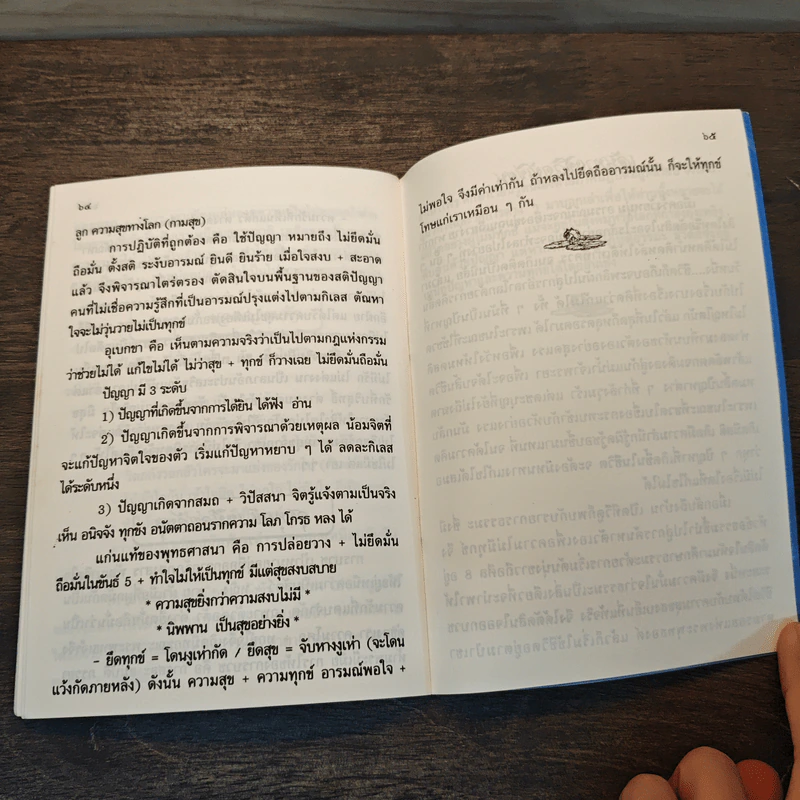 ๖๔
ลูก ความสุขทางโลก (กามสุข)
การปฏิบัติที่ถูกต้อง คือ ใช้ปัญญา หมายถึง ไม่ยึดมั่น
ถือมั่น ตั้งสติ ระงับอารมณ์ ยินดี ยินร้าย เมื่อใจสงบ + สะอาด
แล้ว จึงพิจารณาไตร่ตรอง ตัดสินใจบนพื้นฐานของสติปัญญา
คนที่ไม่เชื่อความรู้สึกที่เป็นอารมณ์ปรุงแต่งไปตามกิเลส ตัณหา
ใจจะไม่วุ่นวายไม่เป็นทุกข์
อุเบกขา คือ เห็นตามความจริงว่าเป็นไปตามกฎแห่งกรรม
ว่าช่วยไม่ได้ แก้ไขไม่ได้ ไม่ว่าสุข + ทุกข์ ก็วางเฉย ไม่ยึดมั่นถือมั่น
ปัญญา มี 3 ระดับ
1) ปัญญาที่เกิดขึ้นจากการได้ยิน ได้ฟัง อ่าน
2) ปัญญาเกิดขึ้นจากการพิจารณาด้วยเหตุผล น้อมจิตที่
จะแก้ปัญหาจิตใจของตัว เริ่มแก้ปัญหาหยาบ ๆ ได้ ลดละกิเลส
ได้ระดับหนึ่ง
3) ปัญญาเกิดจากสมถ + วิปัสสนา จิตรู้แจ้งตามเป็นจริง
เห็น อนิจจัง ทุกขัง อนัตตาถอนรากความ โลภ โกรธ หลง ได้
แก่นแท้ของพุทธศาสนา คือ การปล่อยวาง + ไม่ยึดมั่น
ถือมั่นในขันธ์ 5 + ทำใจไม่ให้เป็นทุกข์ มีแต่สุขสงบสบาย
* ความสุขยิ่งกว่าความสงบไม่มี *
* นิพพาน เป็นสุขอย่างยิ่ง *
- ยึดทุกข์ = โดนงูเห่ากัด / ยึดสุข = จับหางงูเห่า (จะโดน
แว้งกัดภายหลัง) ดังนั้น ความสุข + ความทุกข์ อารมณ์พอใจ +
๖๕
ไม่พอใจ จึงมีค่าเท่ากัน ถ้าหลงไปยึดถืออารมณ์นั้น ก็จะให้ทุกข์
โทษแก่เราเหมือน ๆ กัน